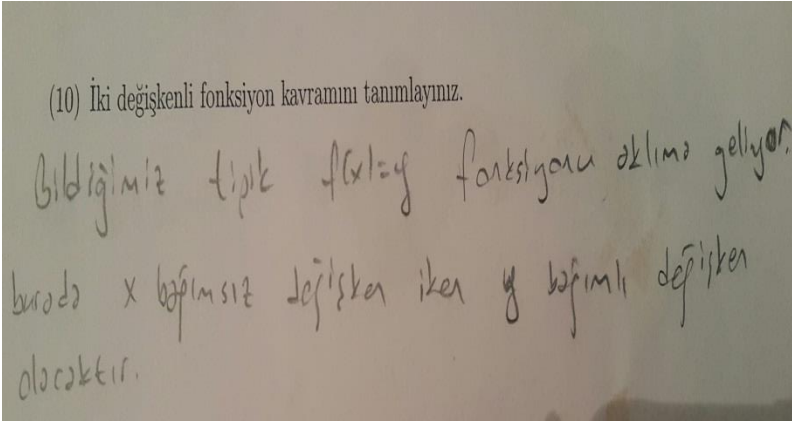 (10) İki değişkenli fonksiyon kavramını tanımlayınız.
Bildiğimiz tipik f(x)=y fonksiyonu aklıma geliyor.
burada x bağımsız değişken iken y bağımlı değişken
olacaktır.